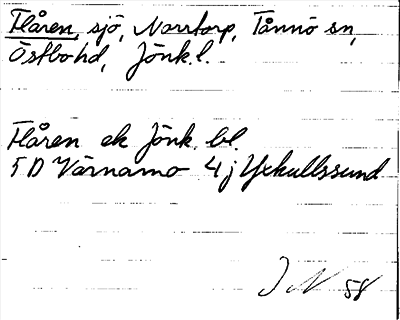 Flåren, sjö, Norrtorp, Tånnö sn,
Östbo hd, Jönk. l.
Flåren ek Jönk. bl.
5 D Värnamo 4 j Yxkullssund
J N 58